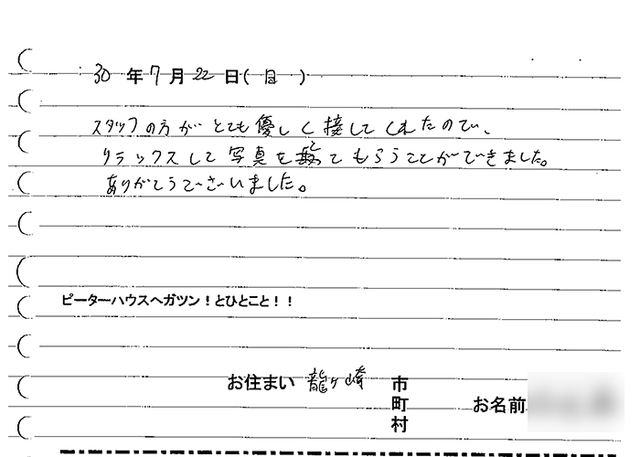 30 年 7 月 22 日( 日 )
スタッフの方がとても優しく接してくれたので、
リラックスして写真をとってもらうことができました。
ありがとうございました。
ピーターハウスへガツン!とひとこと!!
お住まい 龍ヶ崎 市
町
村
お名前